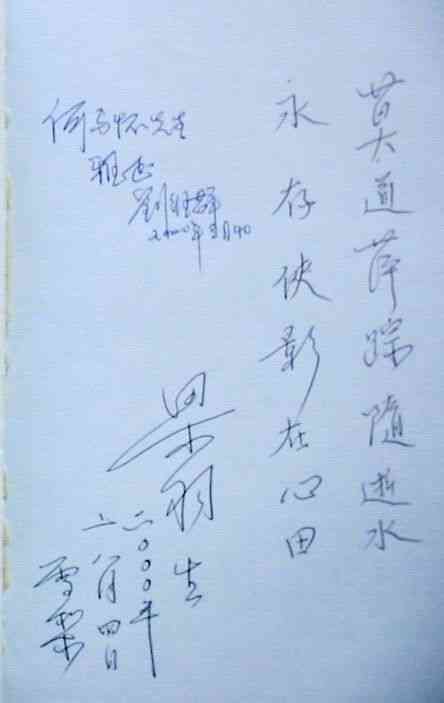 莫道萍踪随逝水
永存侠影在心田
梁羽生
二〇〇〇年
二月四日
雪梨
何与怀先生
雅正
劉维群
2000年2月4日